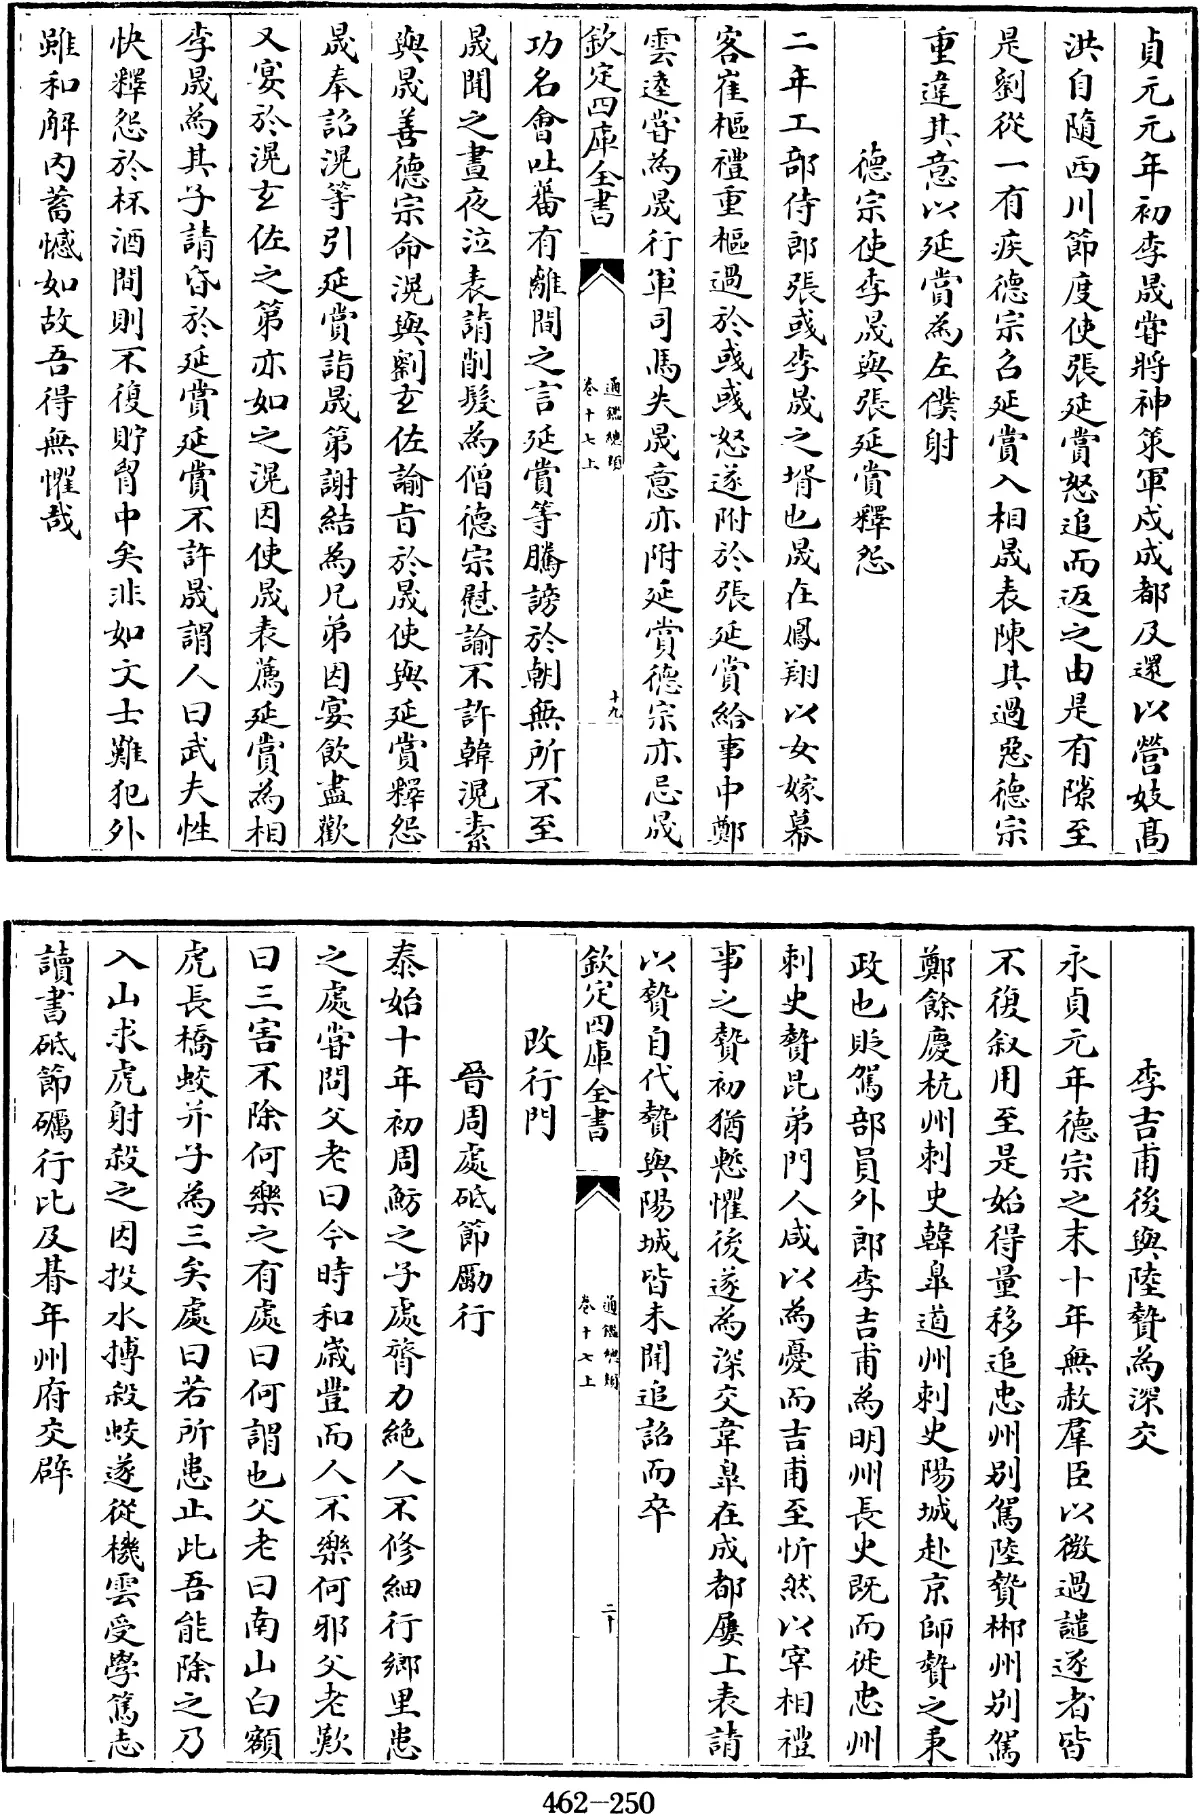 貞元元年初李晟嘗將神策軍戍成都及還以營妓髙
洪自隨西川節度使張延賞怒追而返之由是有隙至
是劉從一有疾德宗召延賞入相晟表陳其過惡德宗
重違其意以延賞為左僕射
德宗使李晟與張延賞釋怨
二年工部侍郎張彧李晟之壻也晟在鳳翔以女嫁幕
客崔樞禮重樞過於彧彧怒遂附於張延賞給事中鄭
雲逵嘗為晟行軍司馬失晟意亦附延賞德宗亦忌晟
欽定四庫全書
通鑑總類
卷十七上
十九
功名會吐蕃有離間之言延賞等騰謗於朝無所不至
晟聞之晝夜泣表請削髮為僧德宗慰諭不許韓滉素
與晟善德宗命滉與劉玄佐諭旨於晟使與延賞釋怨
晟奉詔滉等引延賞詣晟第謝結為兄弟因宴飲盡歡
又宴於滉玄佐之第亦如之滉因使晟表薦延賞為相
李晟為其子請昏於延賞延賞不許晟謂人曰武夫性
快釋怨於杯酒間則不復貯胷中矣非如文士難犯外
雖和解内蓄憾如故吾得無懼哉
李吉甫後與陸贄為深交
永貞元年德宗之末十年無赦羣臣以微過譴逐者皆
不復叙用至是始得量移追忠州别駕陸贄郴州别駕
鄭餘慶杭州刺史韓臯道州刺史陽城赴京師贄之秉
政也貶駕部員外郎李吉甫為明州長史既而徙忠州
刺史贄昆弟門人咸以為憂而吉甫至忻然以宰相禮
事之贄初猶慙懼後遂為深交韋臯在成都屢上表請
以贄自代贄與陽城皆未聞追詔而卒
欽定四庫全書
通鑑總類
卷十七上
二十
改行門
晉周處砥節勵行
泰始十年初周魴之子處膂力絶人不修細行鄉里患
之處嘗問父老曰今時和歲豐而人不樂何邪父老歎
曰三害不除何樂之有處曰何謂也父老曰南山白額
虎長橋蛟并子為三矣處曰若所患止此吾能除之乃
入山求虎射殺之因投水搏殺蛟遂從機雲受學篤志
讀書砥節礪行比及朞年州府交辟
462-250